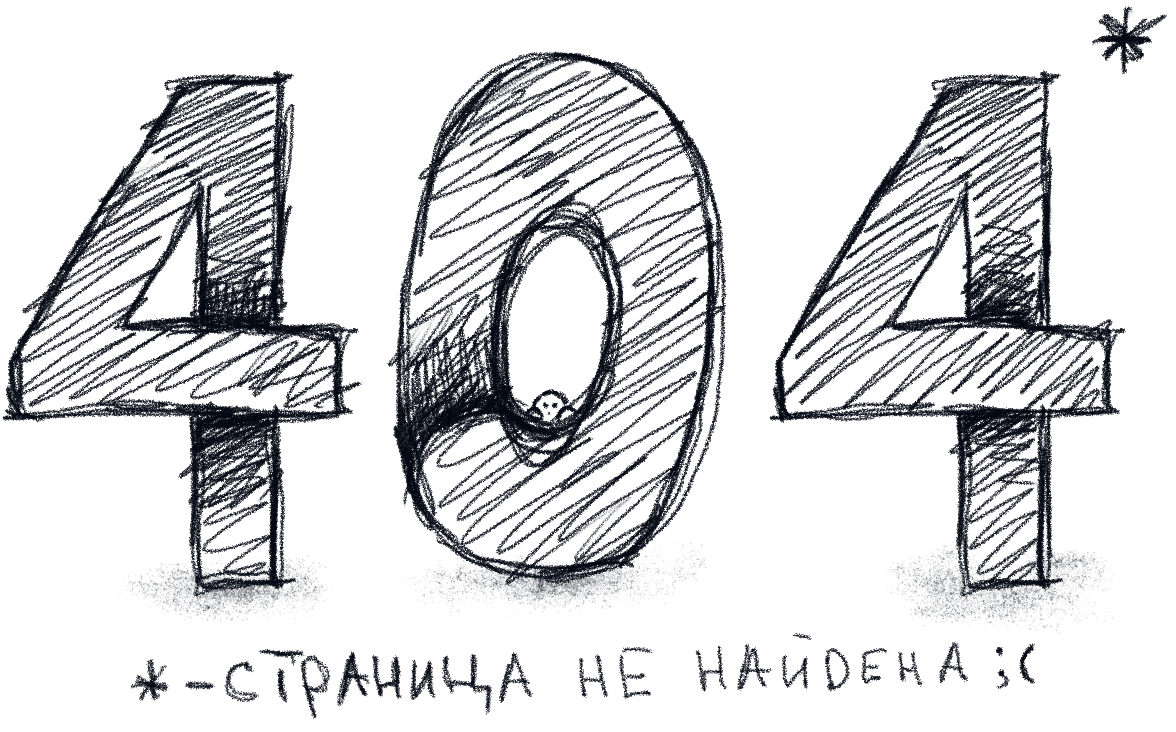 404*
*-СТРАНИЦА НЕ НАЙДЕНА ;(